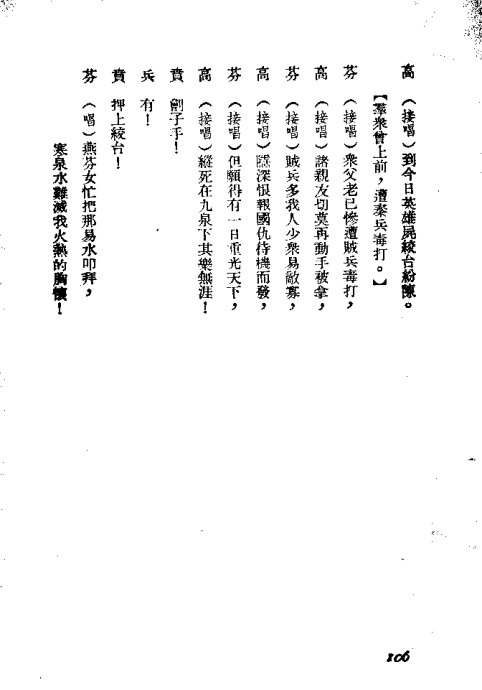 高 (接唱) 到今日英雄屍絞台紛陳。
【羣衆曾上前,遭秦兵毒打。】
芬 (接唱) 衆父老已慘遭賊兵毒打,
高 (接唱) 諸親友切莫再動手被拿,
芬 (接唱) 賊兵多我人少衆易敵寡,
高 (接唱) 隱深恨報國仇待機而發,
芬 (接唱) 但願得有一日重光天下,
高 (接唱) 縱死在九泉下其樂無涯!
賁 劊子手!
兵 有!
賁 押上絞台!
芬 (唱) 燕芬女忙把那易水叩拜,
寒泉水難滅我火熱的胸懷!
106